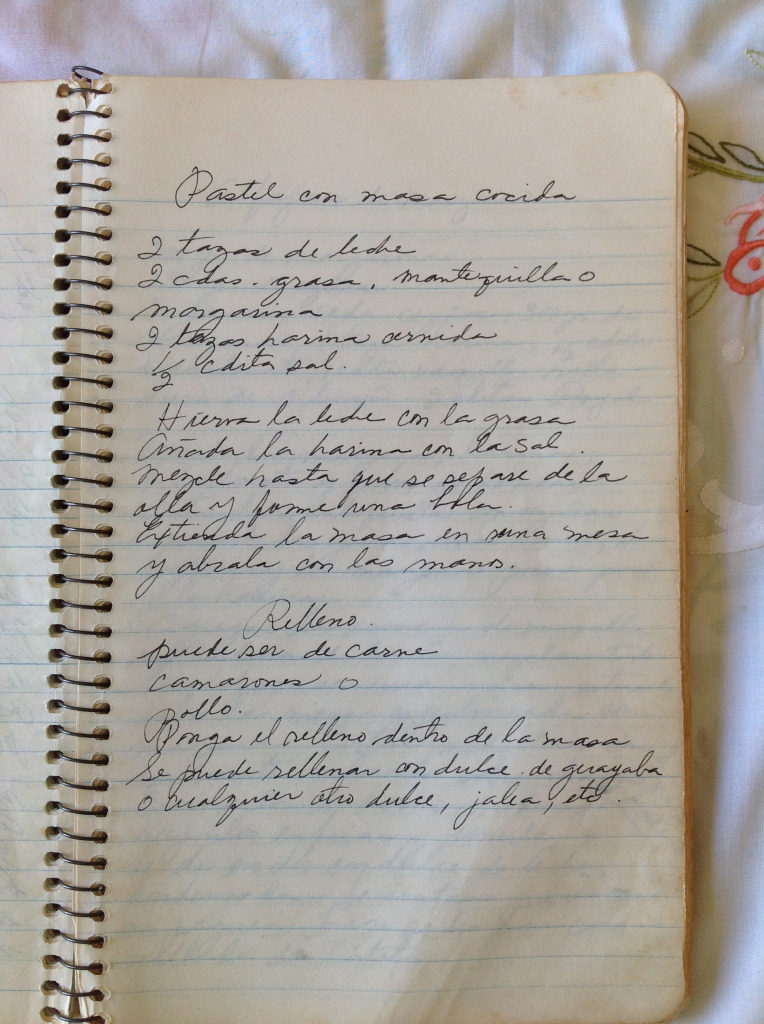 Pastel con masa cocida
2 tazas de leche
2 cdas. grasa, mantequilla o
margarina
2 tazas harina cernida
1/2 cdita sal.
Hierva la leche con la grasa
Añada la harina con la sal.
Mezcle hasta que se separe de la
olla y forme una bola.
Extienda la masa en una mesa
y abrala con las manos.
Relleno.
puede ser de carne
camarones o
Pollo.
Ponga el relleno dentro de la masa
Se puede rellenar con dulce de guayaba
o cualquier otro dulce, jalea, etc.